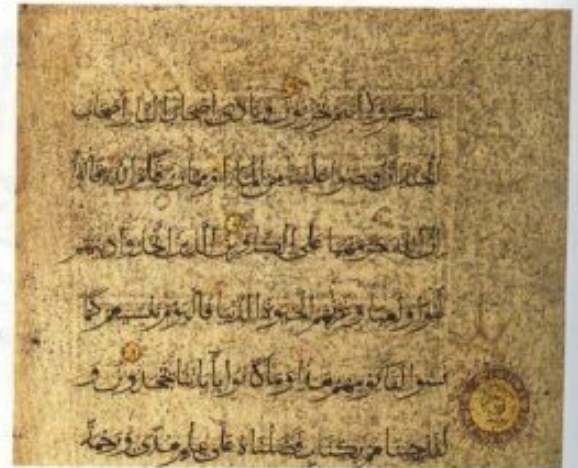 عليكم ولا أنتم تحزنون ونادى أصحاب النار أصحاب
الجنة أن أفيضوا علينا من الماء أو مما رزقكم الله قالوا
إن الله حرمهما على الكافرين الذين اتخذوا دينهم
لهوا ولعبا وغرتهم الحيوة الدنيا فاليوم ننسيهم كما
نسوا لقاء يومهم هذا وما كانوا بآياتنا يجحدون و
لقد جئناهم بكتاب فصلناه على علم هدى ورحمة